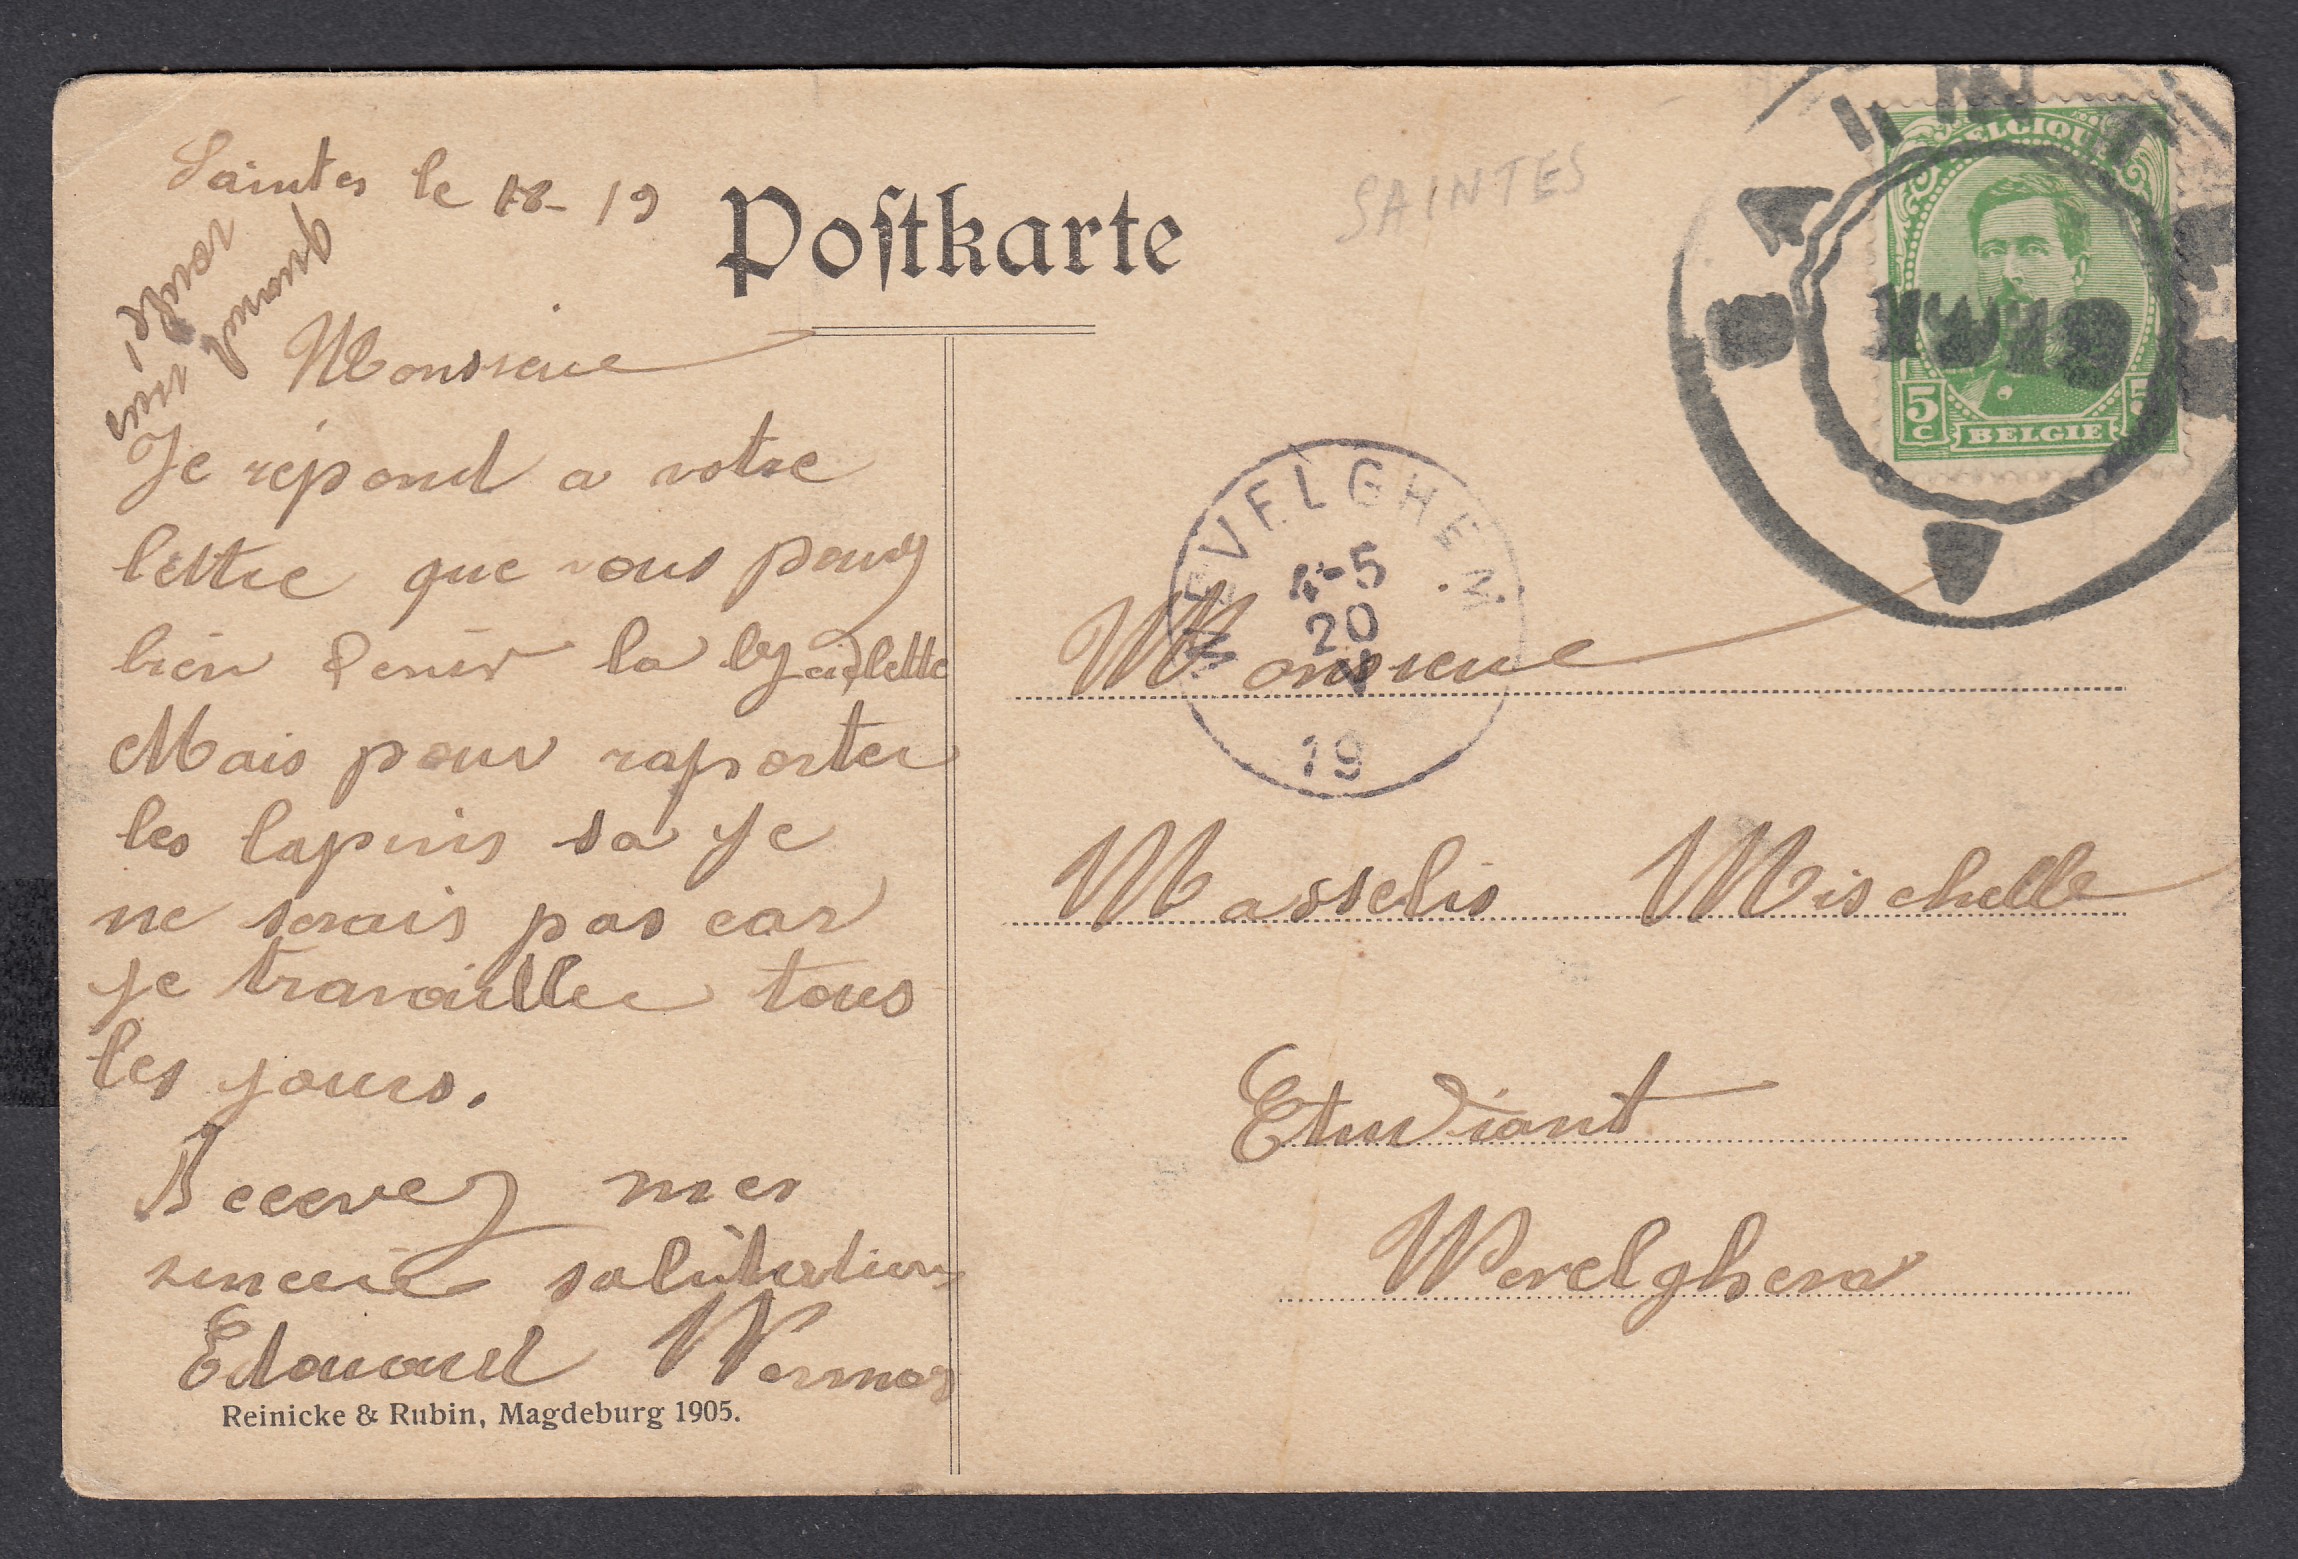 Saintes le 18-19
Postkarte
SAINTES
quand
vous
voulé
Monsieur
Je répond a votre
lettre que vous pouvez
bien venir la
Mais pour raporter
les lapins sa je
ne serais pas car
je travaille tous
les jours.
Recevez mes
sincère salutations
Edouard
Reinicke & Rubin, Magdeburg 1905.
BELGIQUE
5 c
BELGIE
WEVELGHEM
4-5
20
V
19
Monsieur
Masselis Mischelle
Etudiant
Wevelghem